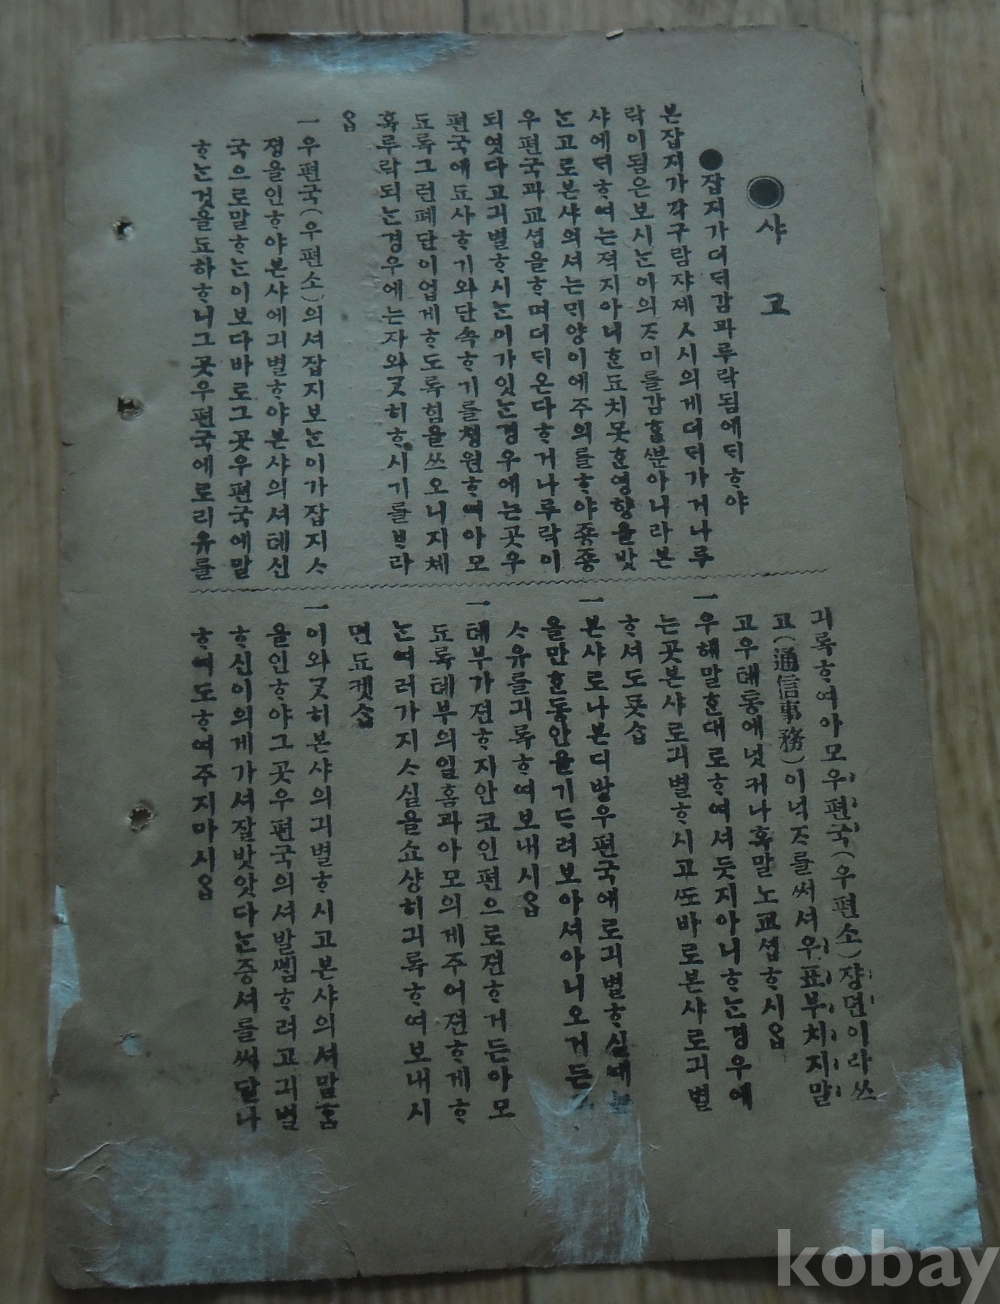 ◉ 샤고
●잡지가더듸감과루락됨에ᄃᆡᄒᆞ야
본잡지가각구람쟈제ᄉᆞ시의게더듸가거나루
락이됨은보시ᄂᆞᆫ이의ᄌᆞ미를감ᄒᆞᆯᄲᅮᆫ아니라본
샤에ᄃᆡᄒᆞ여는젹지아니ᄒᆞᆫ됴치못ᄒᆞᆫ영향을밧
ᄂᆞᆫ고로본샤의셔는ᄆᆡ양이에주의를ᄒᆞ야죵죵
우편국과교셥을ᄒᆞ며더듸온다ᄒᆞ거나루락이
되엿다고긔별ᄒᆞ시ᄂᆞᆫ이가잇ᄂᆞᆫ경우에는곳우
편국에됴사ᄒᆞ기와단속ᄒᆞ기를쳥원ᄒᆞ여아모
됴록그런폐단이업게ᄒᆞ도록힘을쓰오니지체
혹루락되ᄂᆞᆫ경우에는자와ᄀᆞᆺ히ᄒᆞ시기를ᄇᆞ라
옵
一우편국(우편소)의셔잡지보ᄂᆞᆫ이가잡지ᄉᆞ
졍을인ᄒᆞ야본샤에긔별ᄒᆞ야본샤의셔톄신
국으로말ᄒᆞᄂᆞᆫ이보다바로그곳우편국에말
ᄒᆞᄂᆞᆫ것을됴하ᄒᆞ니그곳우편국에로리유를
긔록ᄒᆞ여아모우편국(우편소)쟝뎐이라쓰
고(通信事務)이넉ᄌᆞ를써셔우표부치지말
고우톄통에넛커나혹말노교셥ᄒᆞ시옵
一우헤말ᄒᆞᆫ대로ᄒᆞ여셔듯지아니ᄒᆞᄂᆞᆫ경우에
는곳본샤로긔별ᄒᆞ시고ᄯᅩ바로본샤로긔별
ᄒᆞ셔도둇습
一본샤로나본디방우편국에로긔별ᄒᆞ실ᄯᅢ는
을만ᄒᆞᆫ동안을기ᄃᆞ려보아셔아니오거든
ᄉᆞ유를긔록ᄒᆞ여보내시옵
一톄부가젼ᄒᆞ지안코인편으로젼ᄒᆞ거든아모
됴록톄부의일홈과아모의게주어젼ᄒᆞ게ᄒᆞ
ᄂᆞᆫ여러가지ᄉᆞ실을쇼샹히긔록ᄒᆞ여보내시
면됴켓습
一이와ᄀᆞᆺ히본샤의긔별ᄒᆞ시고본샤의셔말ᄒᆞᆷ
을인ᄒᆞ야그곳우편국의셔발ᄒᆞ려고긔별
ᄒᆞ신이의게가셔잘밧앗다ᄂᆞᆫ증셔를써달나
ᄒᆞ여도ᄒᆞ여주지마시옵
kobay